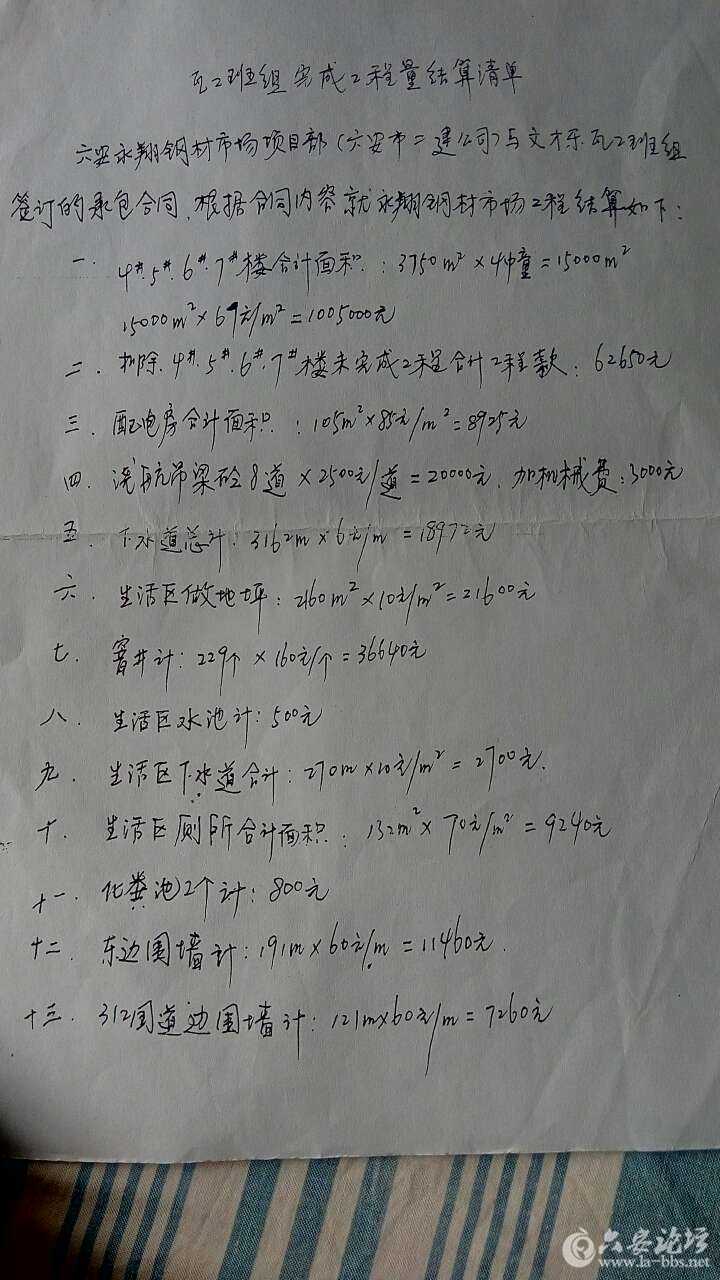 瓦工班组完成工程量结算清单
六安永翔钢材市场项目部(六安市二建公司)与文才乐瓦工班组
签订的承包合同,根据合同内容就永翔钢材市场工程结算如下:
一. 4#.5#.6#.7#楼合计面积:3750m²×4幢=15000m²
15000m²×67元/m²=1005000元
二.扣除.4#.5#.6#.7#楼未完成工程合计工程款:62650元
三.配电房合计面积:105m²×85元/m²=8925元
四.浇航吊梁砼8道×2500元/道=20000元.加机械费:3000元
五.下水道总计:3162m×6元/m=18972元
六.生活区做地坪:2160m²×10元/m²=21600元
七.窨井计:229个×160元/个=36640元
八.生活区水池计:500元
九.生活区下水道合计:270m×10元/m²=2700元.
十.生活区厕所合计面积:132m²×70元/m²=9240元
十一.化粪池2个计:800元
十二.东边围墙计:191m×60元/m=11460元.
十三.312国道边围墙计:121m×60元/m=7260元
六安论坛
www.la-bbs.net